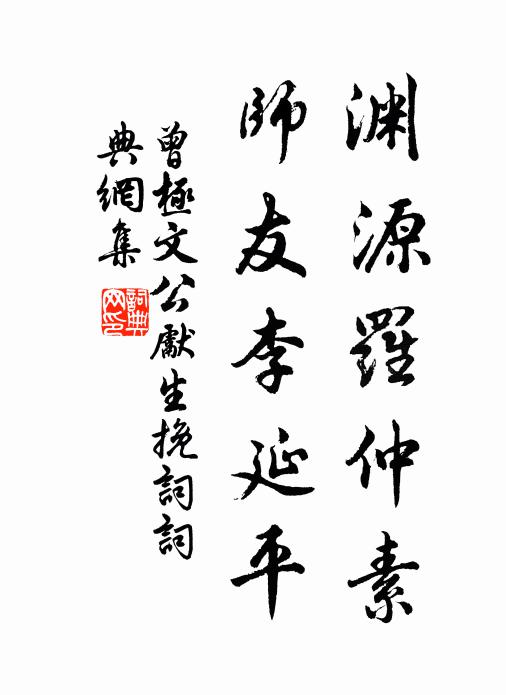 渊源羅仲素
師友李延平
曾極文公獻生挽詞詞
典網集
詞典網印